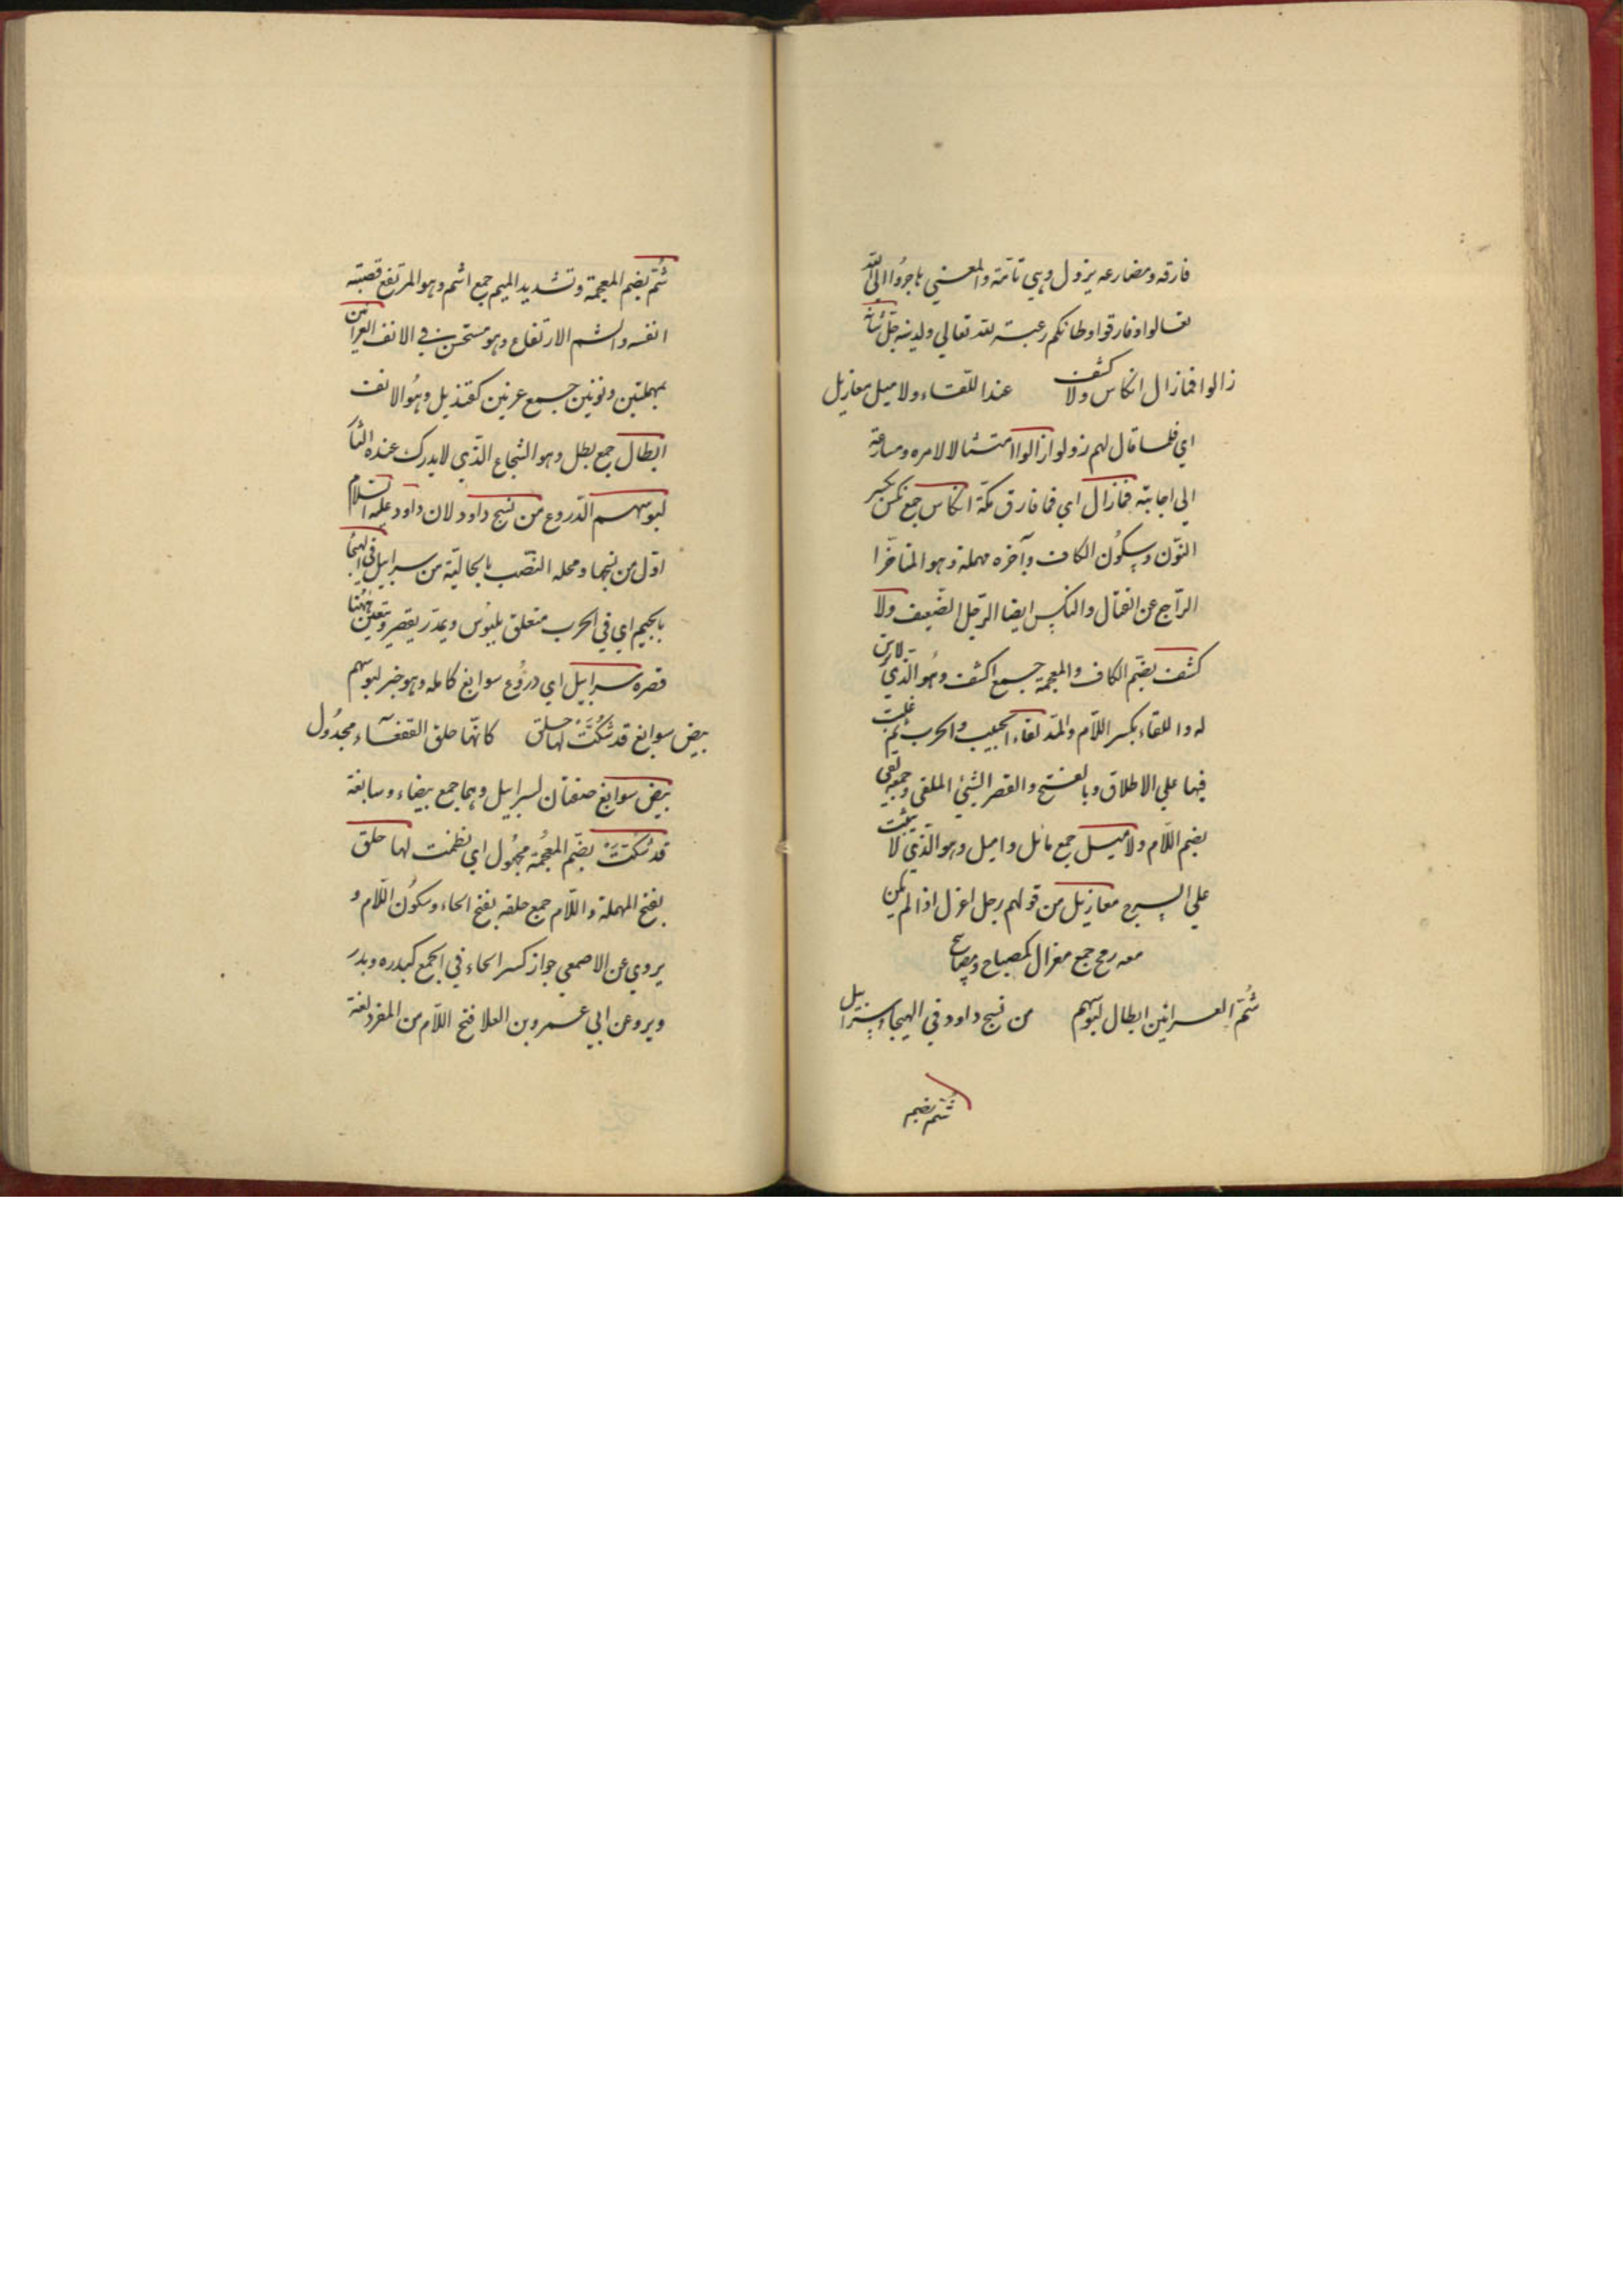 فارقه ومضارعه يزول وهي تامة والمعني هاجروا الي الله
تعالوا وفارقوا وطانكم رغبة لله تعالي ولدينه جل شانه
زالوا فمازال انكاس ولا كشف عند اللقاء ولا ميل معازيل
اي فلما قال لهم زولوا زالوا امتثالا لامره ومسارعة
الي اجابته فمازال اي فما فارق مكة انكاس جمع نكس بكسر
النون وسكون الكاف وآخره مهملة وهو المتاخر
الراجع عن القتال والنكس ايضا الرجل الضعيف ولا
كشف بضم الكاف والمعجمة جمع اكشف وهو الذي لا ترس
له واللقاء بكسر اللام والمد لقاء الحبيب والحرب ثم غلبت
فيها علي الاطلاق وبالفتح والقصر الشيئ الملقي وجمعه لقي
بضم اللام ولا ميل جمع مائل واميل وهو الذي لا يثبت
علي السرج معازيل من قولهم رجل اعزل اذا لم يكن
معه رمح جمع معزال كمصباح ومصابيح
شم العرانين ابطال لبوسهم من نسج داود في الهيجا سرابيل
شم بضم
شم بضم المعجمة وتشديد الميم جمع اشم وهو المرتفع قصبته
انفه والشم الارتفاع وهو مستحسن في الانف العرانين
بمهملتين ونونين جمع عرنين كقنديل وهو الانف
ابطال جمع بطل وهو الشجاع الذي لا يدرك عنده الثأر
لبوسهم الدروع من نسج داود لان داود عليه السلام
اول من نسجها ومحله النصب بالحالية من سرابيل في الهيجا
بالجيم اي في الحرب متعلق بلبوس ويمد ويقصر ويتعين ههنا
قصره سرابيل اي دروع سوابغ كامله وهو خبر لبوسهم
بيض سوابغ قد شكت لها حلق كانها حلق القفعاء مجدول
بيض سوابغ صفتان لسرابيل وهما جمع بيضاء وسابغة
قد شكت بضم المعجمة مجهول اي نظمت لها حلق
بفتح المهملة واللام جمع حلقه بفتح الحاء وسكون اللام و
يروي عن الاصمعي جواز كسر الحاء في الجمع كبدره وبدر
ويرو عن ابي عمرو بن العلا فتح اللام من المفرد لغة